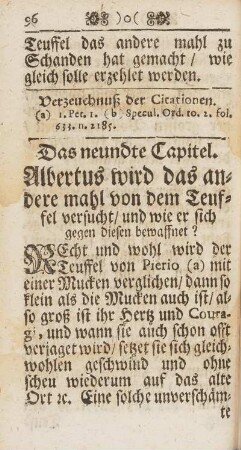 96 )o(
Teuffel das andere mahl zu
Schanden hat gemacht / wie
gleich solle erzehlet werden.
Verzeuchnuß der Citationen.
(a) 1. Pet. 1. (b) Specul. Ord. to. 2. fol.
633. n. 2185.
Das neundte Capitel.
Albertus wird das an-
dere mahl von dem Teuf-
fel versucht / und wie er sich
gegen diesen bewaffnet?
REcht und wohl wird der
Teuffel von Pierio (a) mit
einer Mucken verglichen / dann so
klein als die Mucken auch ist / al-
so groß ist ihr Hertz und Coura-
gi, und wann sie auch schon offt
verjaget wird / setzet sie sich gleich-
wohlen geschwind und ohne
scheu wiederum auf das alte
Ort ꝛc. Eine solche unverschäm-
te